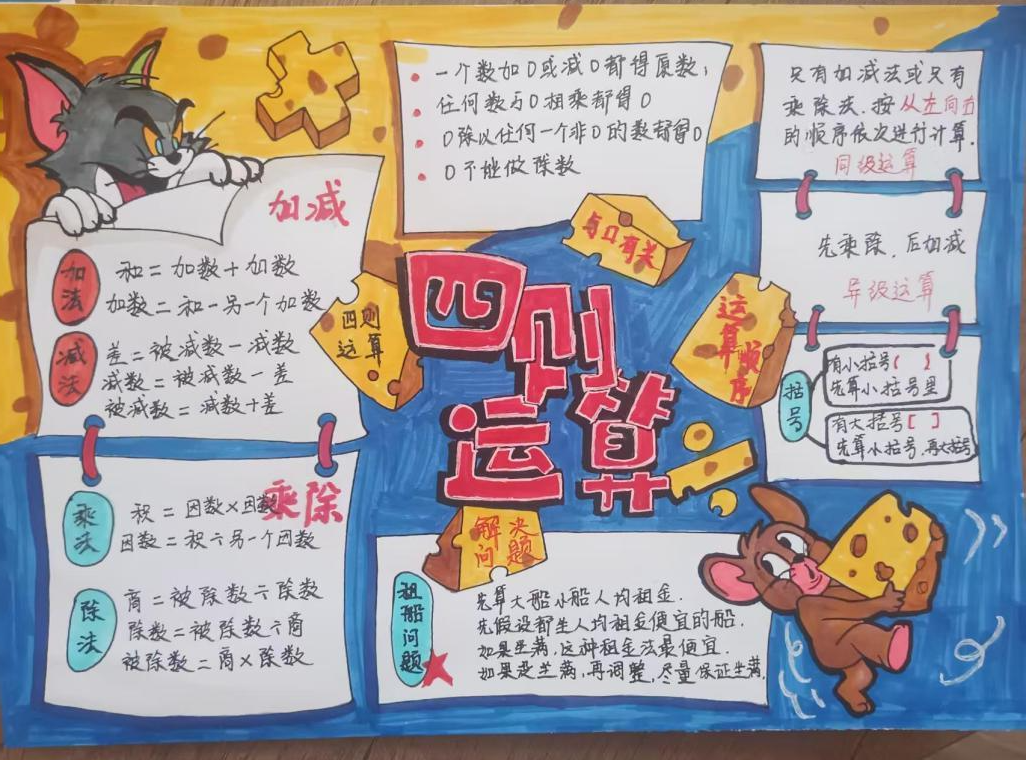 加减
加法
和=加数+加数
加数=和-另一个加数
减法
差=被减数-减数
减数=被减数-差
被减数=减数+差
乘除
乘法
积=因数×因数
因数=积÷另一个因数
除法
商=被除数÷除数
除数=被除数÷商
被除数=商×除数
四则
运算
一个数加0或减0都得原数,
任何数与0相乘都得0
0除以任何一个非0的数都得0
0不能做除数
与0有关
四则
运算
运算顺序
只有加减法或只有
乘除法.按从左向右
的顺序依次进行计算.
同级运算
先乘除.后加减
异级运算
括号
有小括号( )
先算小括号里
有大括号[ ]
先算小括号,再大括号
解决
问题
租船问题
先算大船小船人均租金.
先假设都坐人均租金便宜的船.
如果坐满,这种租金法最便宜.
如果没坐满,再调整,尽量保证坐满.